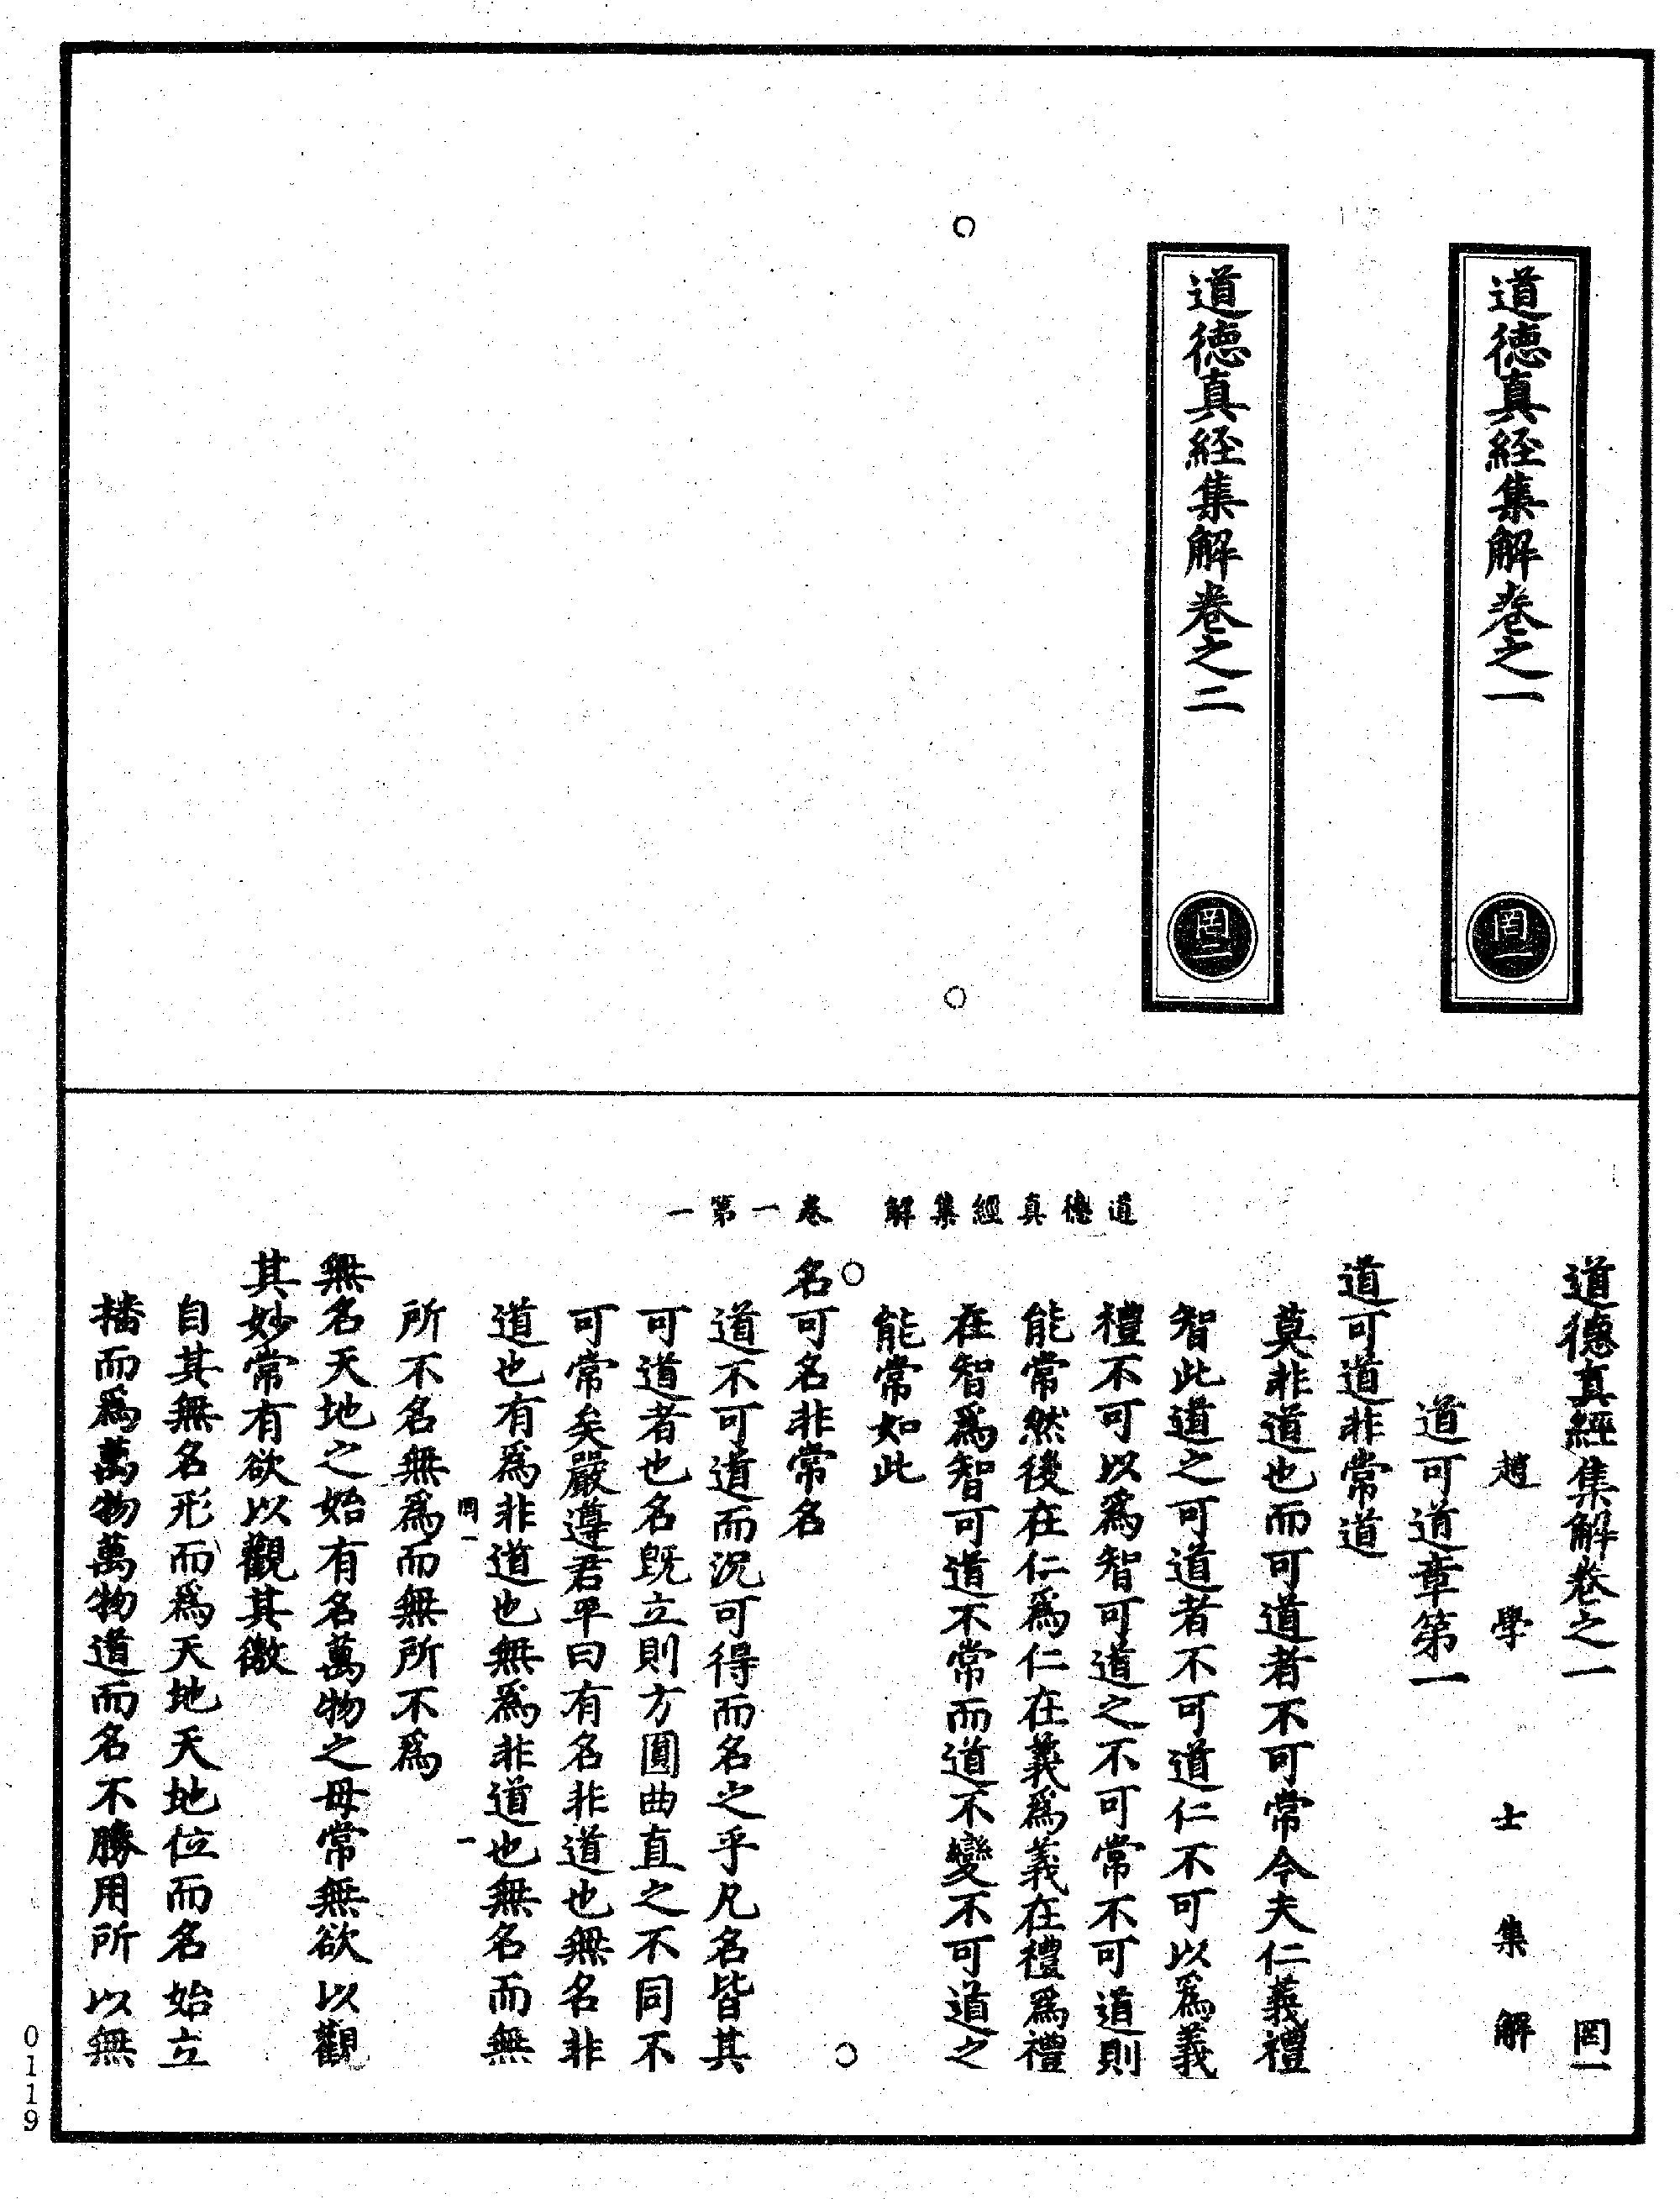 道德真経集解卷之一
罔一
道德真経集解卷之二
罔二
道德真經集解　卷一第一
道德真經集解卷之一　罔一
趙學士集解
道可道章第一
道可道非常道
莫非道也而可道者不可常今夫仁義禮
智此道之可道者不可道仁不可以爲義
禮不可以爲智可道之不可常不可道則
能常然後在仁爲仁在義爲義在禮爲禮
在智爲智可道不常而道不變不可道之
能常如此
名可名非常名
道不可道而況可得而名之乎凡名皆其
可道者也名既立則方圓曲直之不同不
可常矣嚴遵君平曰有名非道也無名非
道也有爲非道也無爲非道也無名而無
罔一　一
所不名無爲而無所不爲
無名天地之始有名萬物之母常無欲以觀
其妙常有欲以觀其徼
自其無名形而爲天地天地位而名始立
播而爲萬物萬物道而名不勝用所以無
0119